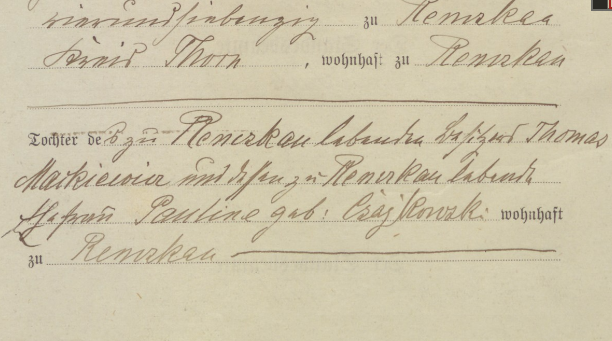 vierundsiebenzig zu Renczkau
Kreis Thorn, wohnhaft zu Renczkau
Tochter des zu Renczkau lebenden Besitzers Thomas
Markiewicz und dessen zu Renczkau lebende
Ehefrau Pauline geb: Czajkowski wohnhaft
zu Renczkau